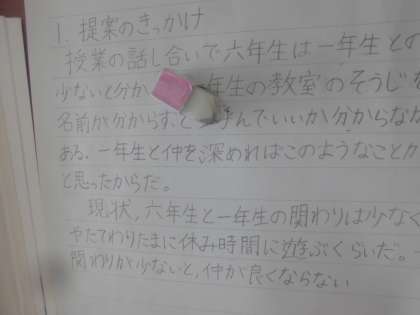 1. 提案のきっかけ
授業の話し合いで六年生は一年生との
少ないと分か 年生の教室のそうじを
名前が分からず、と 呼んでいいか分からなか
ある。一年生と仲を深めればこのようなことが
と思ったからだ。
現状、六年生と一年生の関わりは少なく
やたてわりたまに休み時間に遊ぶくらいだ。
関わりが少ないと、仲が良くならない